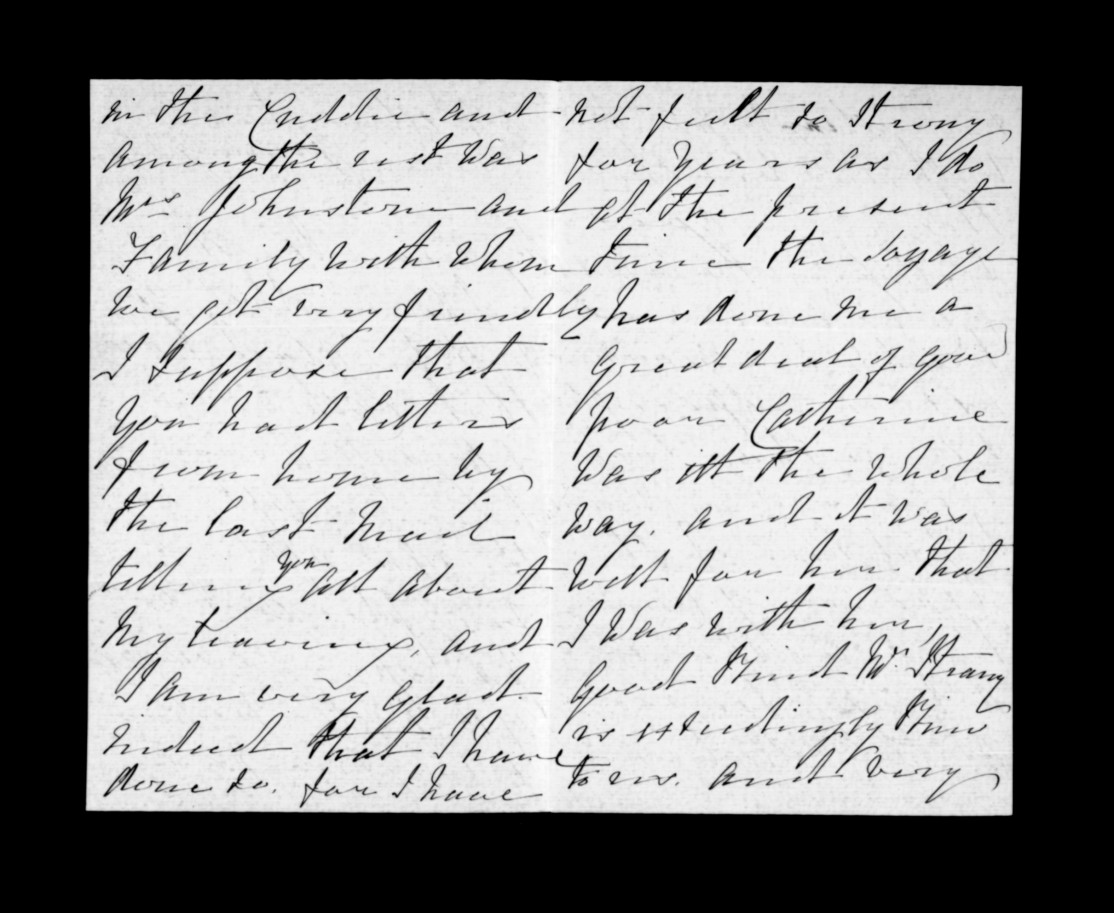 in the Cuddie and
among the rest was
Mrs Johnstone and
Family with whom
we got very friendly
I suppose that
you had letters
from home by
the last mail
telling you all about
my leaving, and
I am very glad
indeed that I have
done so. for I have
not felt so strong
for years as I do
at the present
time the voyage
has done me a
great deal of good
poor Catherine
was ill the whole
way. and it was
well for her that
I was with her,
good kind Mr. Strang
is exceedingly kind
to us. and very